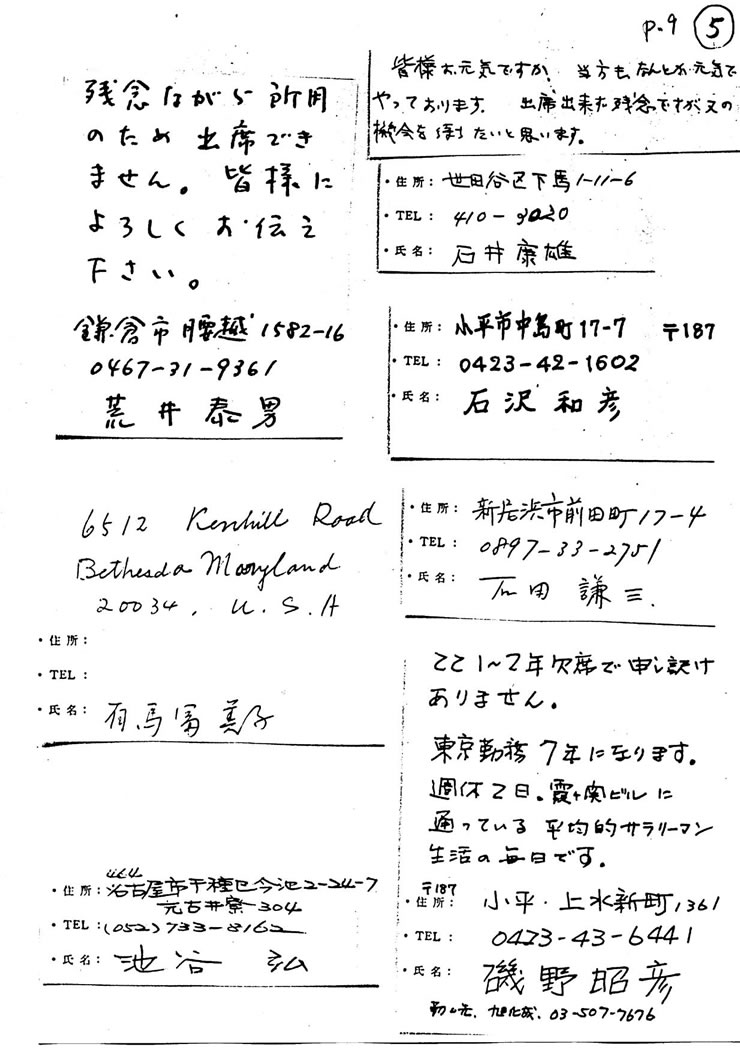 P.9 ⑤
残念ながら所用
のため出席でき
ません。皆様に
よろしくお伝え
下さい。
鎌倉市腰越1582-16
0467-31-9361
荒井泰男
6512 Kenhill Road
Bethesda Maryland
20034, U.S.A
・住所:
・TEL:
・氏名: 有馬冨美子
464
・住所: 名古屋市千種区今池2-24-7
元古井寮 304
・TEL: (052) 733-8162
・氏名: 池谷 弘
皆様お元気ですか。当方もなんとか元気で
やっております。出席出来ず残念ですが又の
機会を得たいと思います。
・住所: 世田谷区下馬1-11-6
・TEL: 410-9020
・氏名: 石井康雄
・住所: 小平市中島町17-7 〒187
・TEL: 0423-42-1602
・氏名: 石沢和彦
・住所: 新居浜市前田町17-4
・TEL: 0897-33-2751
・氏名: 石田謙三.
ここ1~2年欠席で申し訳け
ありません。
東京勤務7年になります。
週休2日。霞ヶ関ビルに
通っている平均的サラリーマン
生活の毎日です。
〒187
・住所: 小平・上水新町1361
・TEL: 0423-43-6441
・氏名: 磯野昭彦
勤ム先. 旭化成. 03-507-7676